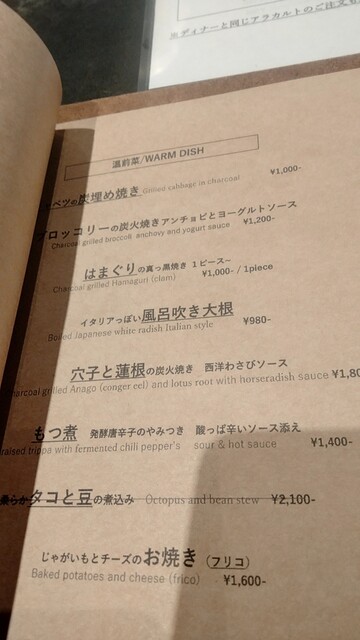 ※ディナーと同じアラカルトのご注文も
温前菜/WARM DISH
ベツの炭埋め焼き Grilled cabbage in charcoal ¥1,000-
ブロッコリーの炭火焼きアンチョビとヨーグルトソース
Charcoal grilled broccoli anchovy and yogurt sauce ¥1,200-
はまぐりの真っ黒焼き 1ピース~
Charcoal grilled Hamaguri (clam) ¥1,000- / 1piece
イタリアっぽい風呂吹き大根
Boiled Japanese white radish Italian style ¥980-
穴子と蓮根の炭火焼 西洋わさびソース
harcoal grilled Anago (conger eel) and lotus root with horseradish sauce ¥1,80
もつ煮 発酵唐辛子のやみつき 酸っぱ辛いソース添え
raised trippa with fermented chili pepper's sour & hot sauce ¥1,400-
柔らかタコと豆の煮込み Octopus and bean stew ¥2,100-
じゃがいもとチーズのお焼き(フリコ)
Baked potatoes and cheese (frico) ¥1,600-